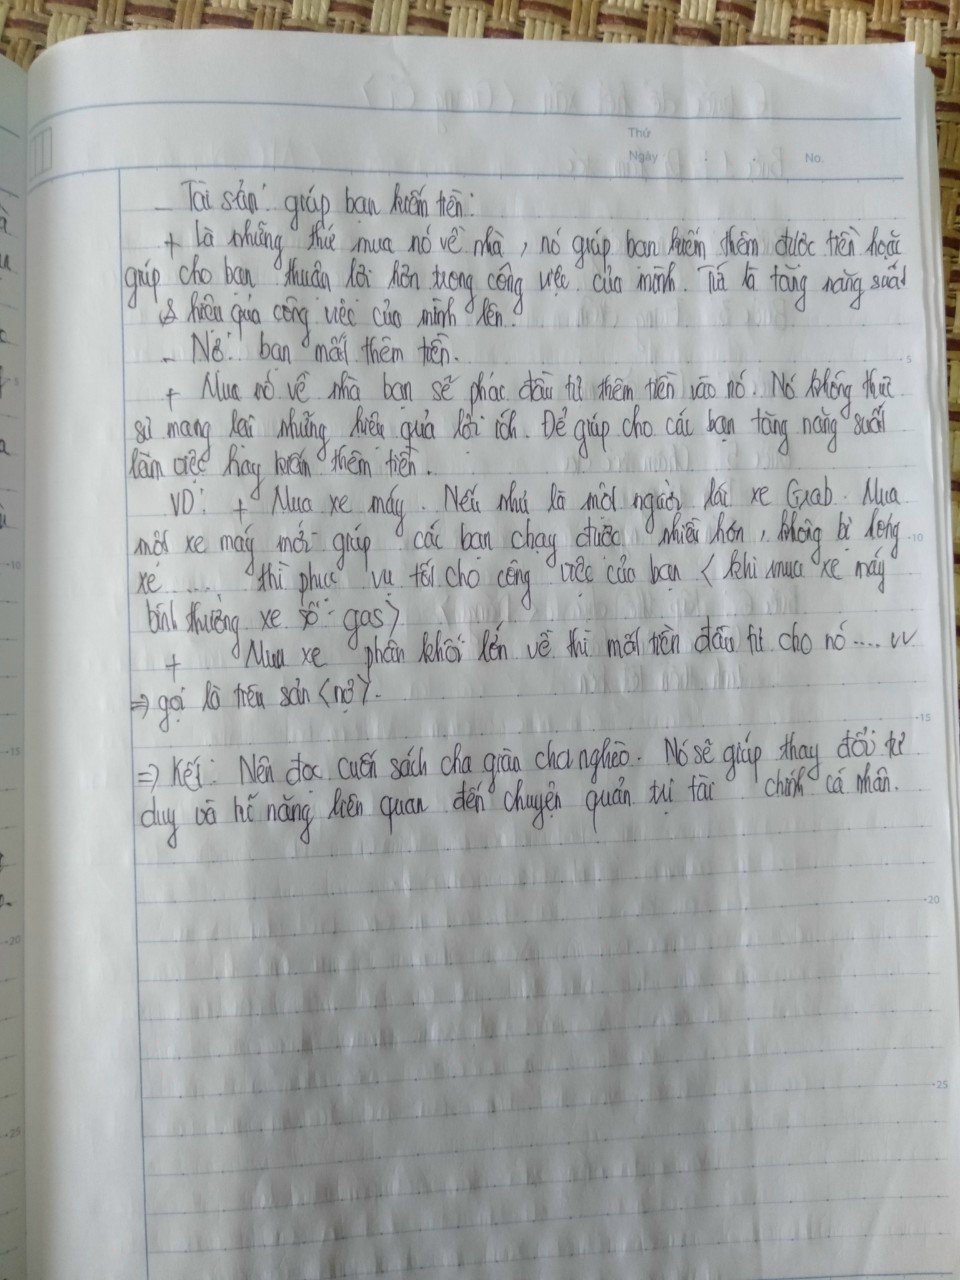 Thứ
Ngày
No.
- Tài sản: giúp bạn kiếm tiền:
+ Là những thứ mua nó về nhà, nó giúp bạn kiếm thêm được tiền hoặc
giúp cho bạn thuận lợi hơn trong công việc của mình. Tức là tăng năng suất
& hiệu quả công việc của mình lên.
- Nợ: bạn mất thêm tiền.
+ Mua nó về nhà bạn sẽ phác đầu tư thêm tiền vào nó. Nó không thực
sự mang lại những hiệu quả lợi ích. Để giúp cho các bạn tăng năng suất
làm việc hay kiếm thêm tiền.
VD: + Mua xe máy. Nếu như là một người lái xe Grab. Mua
một xe máy mới giúp các bạn chạy được nhiều hơn, không bị hỏng
xe .... thì phục vụ tốt cho công việc của bạn < khi mua xe máy
bình thường xe số - gas>
+ Mua xe phân khối lớn về thì mất tiền đầu tư cho nó.... vv
=> gọi là tiêu sản <nợ>.
=> Kết: Nên đọc cuốn sách cha giàu cha nghèo. Nó sẽ giúp thay đổi tư
duy và kĩ năng liên quan đến chuyện quản trị tài chính cá nhân.
5
10
15
20
25